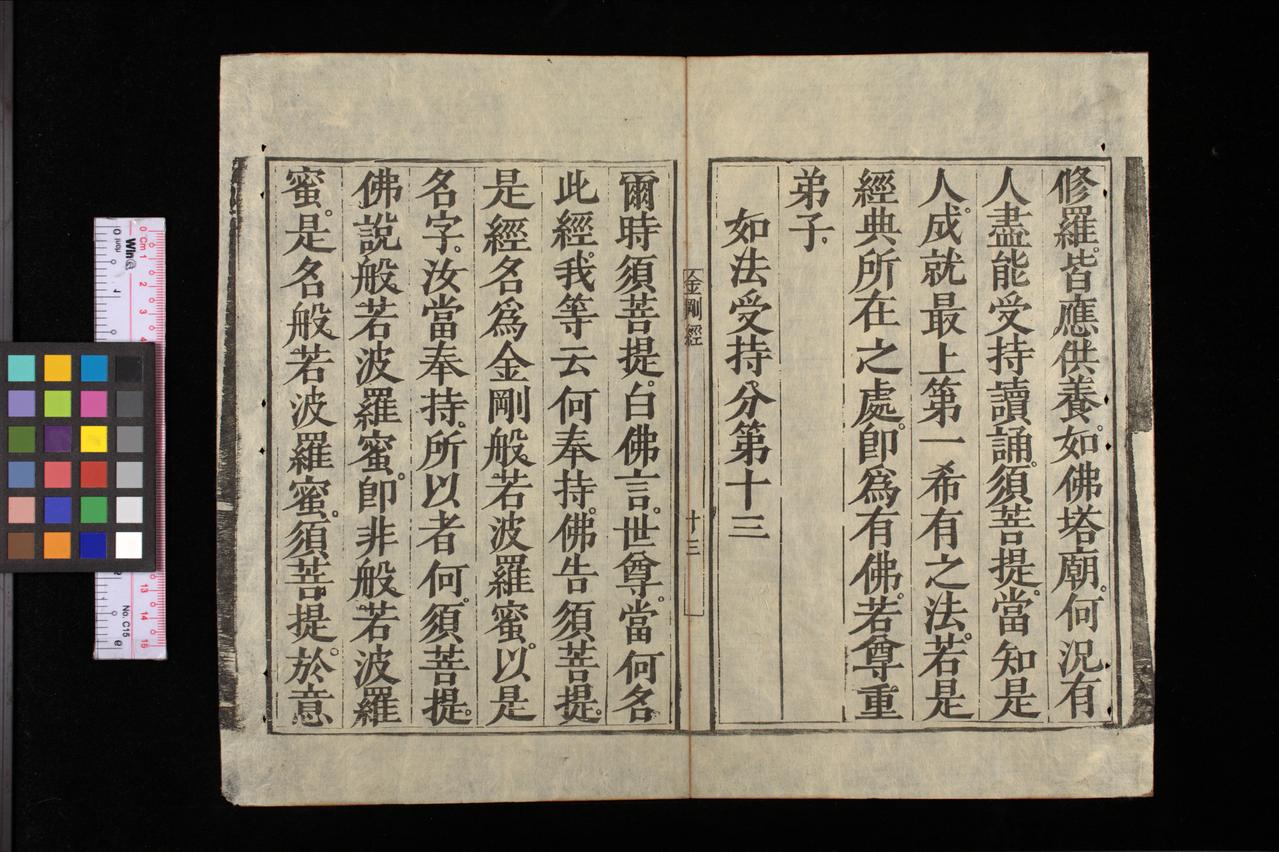 修羅。皆應供養。如佛塔廟。何況有
人盡能受持讀誦。須菩提。當知是
人。成就最上第一希有之法。若是
經典所在之處。卽爲有佛。若尊重
弟子。
如法受持分第十三
金剛經
十三
爾時須菩提。白佛言。世尊。當何名
此經。我等云何奉持。佛告須菩提。
是經名爲金剛般若波羅蜜。以是
名字。汝當奉持。所以者何。須菩提。
佛說般若波羅蜜。卽非般若波羅
蜜。是名般若波羅蜜。須菩提。於意